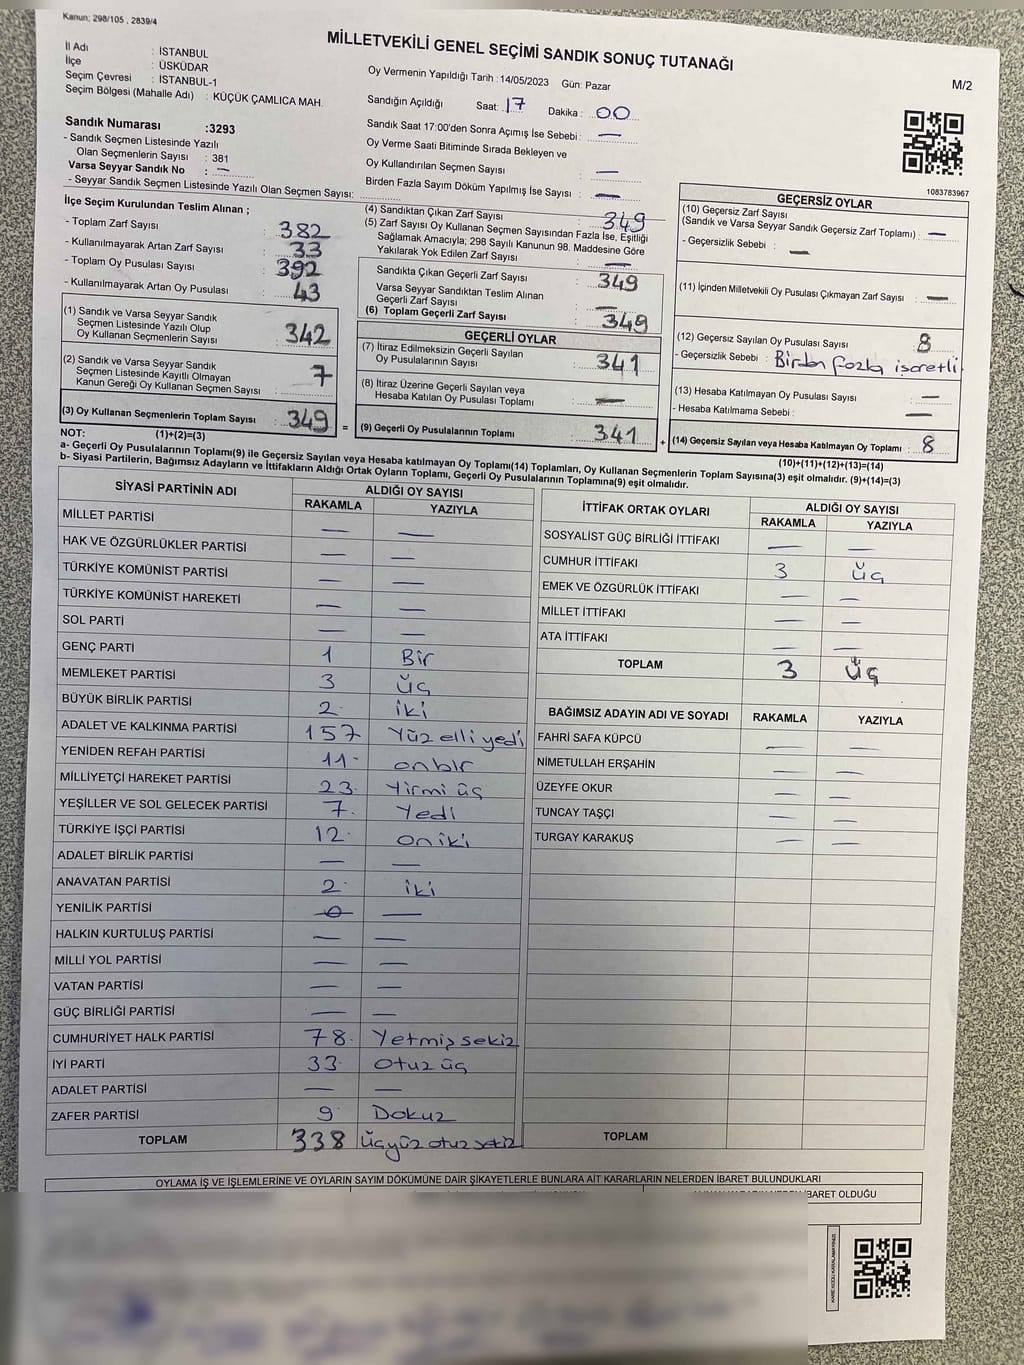 Kanun: 298/105 , 2839/4
MİLLETVEKİLİ GENEL SEÇİMİ SANDIK SONUÇ TUTANAĞI
M/2
İl Adı : İSTANBUL
İlçe : ÜSKÜDAR
Seçim Çevresi : İSTANBUL-1
Seçim Bölgesi (Mahalle Adı) : KÜÇÜK ÇAMLICA MAH.
Oy Vermenin Yapıldığı Tarih : 14/05/2023 Gün: Pazar
Sandığın Açıldığı Saat: 17 Dakika : 00
Sandık Saat 17:00'den Sonra Açımış İse Sebebi : —
Oy Verme Saati Bitiminde Sırada Bekleyen ve
Oy Kullandırılan Seçmen Sayısı : —
Birden Fazla Sayım Döküm Yapılmış İse Sayısı : —
Sandık Numarası :3293
- Sandık Seçmen Listesinde Yazılı
Olan Seçmenlerin Sayısı : 381
Varsa Seyyar Sandık No : —
- Seyyar Sandık Seçmen Listesinde Yazılı Olan Seçmen Sayısı:
1083783967
İlçe Seçim Kurulundan Teslim Alınan ;
- Toplam Zarf Sayısı : 382
- Kullanılmayarak Artan Zarf Sayısı : 33
- Toplam Oy Pusulası Sayısı : 392
- Kullanılmayarak Artan Oy Pusulası : 43
(1) Sandık ve Varsa Seyyar Sandık
Seçmen Listesinde Yazılı Olup
Oy Kullanan Seçmenlerin Sayısı : 342
(2) Sandık ve Varsa Seyyar Sandık
Seçmen Listesinde Kayıtlı Olmayan
Kanun Gereği Oy Kullanan Seçmen Sayısı : 7
(3) Oy Kullanan Seçmenlerin Toplam Sayısı : 349
(1)+(2)=(3)
(4) Sandıktan Çıkan Zarf Sayısı : 349
(5) Zarf Sayısı Oy Kullanan Seçmen Sayısından Fazla İse, Eşitliği
Sağlamak Amacıyla; 298 Sayılı Kanunun 98. Maddesine Göre
Yakılarak Yok Edilen Zarf Sayısı : —
Sandıkta Çıkan Geçerli Zarf Sayısı : 349
Varsa Seyyar Sandıktan Teslim Alınan
Geçerli Zarf Sayısı : —
(6) Toplam Geçerli Zarf Sayısı : 349
GEÇERLİ OYLAR
(7) İtiraz Edilmeksizin Geçerli Sayılan
Oy Pusulalarının Sayısı : 341
(8) İtiraz Üzerine Geçerli Sayılan veya
Hesaba Katılan Oy Pusulası Toplamı : —
= (9) Geçerli Oy Pusulalarının Toplamı : 341
GEÇERSİZ OYLAR
(10) Geçersiz Zarf Sayısı
(Sandık ve Varsa Seyyar Sandık Geçersiz Zarf Toplamı) : —
- Geçersizlik Sebebi : —
(11) İçinden Milletvekili Oy Pusulası Çıkmayan Zarf Sayısı : —
(12) Geçersiz Sayılan Oy Pusulası Sayısı : 8
- Geçersizlik Sebebi : Birden fazla işaretli
(13) Hesaba Katılmayan Oy Pusulası Sayısı : —
- Hesaba Katılmama Sebebi : —
+ (14) Geçersiz Sayılan veya Hesaba Katılmayan Oy Toplamı : 8
(10)+(11)+(12)+(13)=(14)
NOT:
a- Geçerli Oy Pusulalarının Toplamı(9) ile Geçersiz Sayılan veya Hesaba katılmayan Oy Toplamı(14) Toplamları, Oy Kullanan Seçmenlerin Toplam Sayısına(3) eşit olmalıdır. (9)+(14)=(3)
b- Siyasi Partilerin, Bağımsız Adayların ve İttifakların Aldığı Ortak Oyların Toplamı, Geçerli Oy Pusulalarının Toplamına(9) eşit olmalıdır.
SİYASİ PARTİNİN ADI ALDIĞI OY SAYISI
RAKAMLA YAZIYLA
MİLLET PARTİSİ — —
HAK VE ÖZGÜRLÜKLER PARTİSİ — —
TÜRKİYE KOMÜNİST PARTİSİ — —
TÜRKİYE KOMÜNİST HAREKETİ — —
SOL PARTİ — —
GENÇ PARTİ 1 Bir
MEMLEKET PARTİSİ 3 üç
BÜYÜK BİRLİK PARTİSİ 2 iki
ADALET VE KALKINMA PARTİSİ 157 Yüz elli yedi
YENİDEN REFAH PARTİSİ 11 onbir
MİLLİYETÇİ HAREKET PARTİSİ 23 Yirmi üç
YEŞİLLER VE SOL GELECEK PARTİSİ 7 Yedi
TÜRKİYE İŞÇİ PARTİSİ 12 oniki
ADALET BİRLİK PARTİSİ — —
ANAVATAN PARTİSİ 2 iki
YENİLİK PARTİSİ 0 —
HALKIN KURTULUŞ PARTİSİ — —
MİLLİ YOL PARTİSİ — —
VATAN PARTİSİ — —
GÜÇ BİRLİĞİ PARTİSİ — —
CUMHURİYET HALK PARTİSİ 78 Yetmiş sekiz
İYİ PARTİ 33 Otuz üç
ADALET PARTİSİ — —
ZAFER PARTİSİ 9 Dokuz
TOPLAM 338 Üçyüz otuz sekiz
İTTİFAK ORTAK OYLARI ALDIĞI OY SAYISI
RAKAMLA YAZIYLA
SOSYALİST GÜÇ BİRLİĞİ İTTİFAKI — —
CUMHUR İTTİFAKI 3 üç
EMEK VE ÖZGÜRLÜK İTTİFAKI — —
MİLLET İTTİFAKI — —
ATA İTTİFAKI — —
TOPLAM 3 üç
BAĞIMSIZ ADAYIN ADI VE SOYADI RAKAMLA YAZIYLA
FAHRİ SAFA KÜPCÜ — —
NİMETULLAH ERŞAHİN — —
ÜZEYFE OKUR — —
TUNCAY TAŞÇI — —
TURGAY KARAKUŞ — —
TOPLAM
OYLAMA İŞ VE İŞLEMLERİNE VE OYLARIN SAYIM DÖKÜMÜNE DAİR ŞİKAYETLERLE BUNLARA AİT KARARLARIN NELERDEN İBARET BULUNDUKLARI
İBARET OLDUĞU
KARE KODU KARALAMAYINIZ!